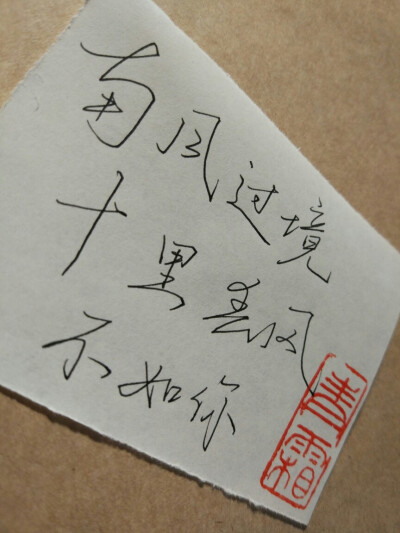 南风过境
十里春风
不如你